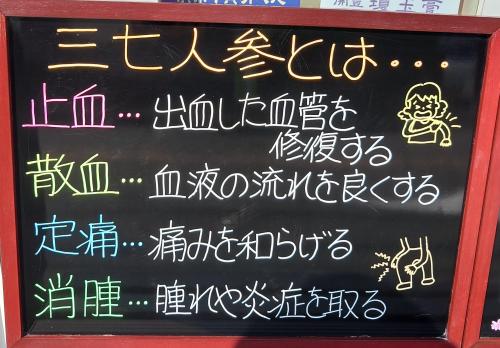 三七人参とは・・・
止血…出血した血管を
修復する
散血…血液の流れを良くする
定痛…痛みを和らげる
消腫…腫れや炎症を取る